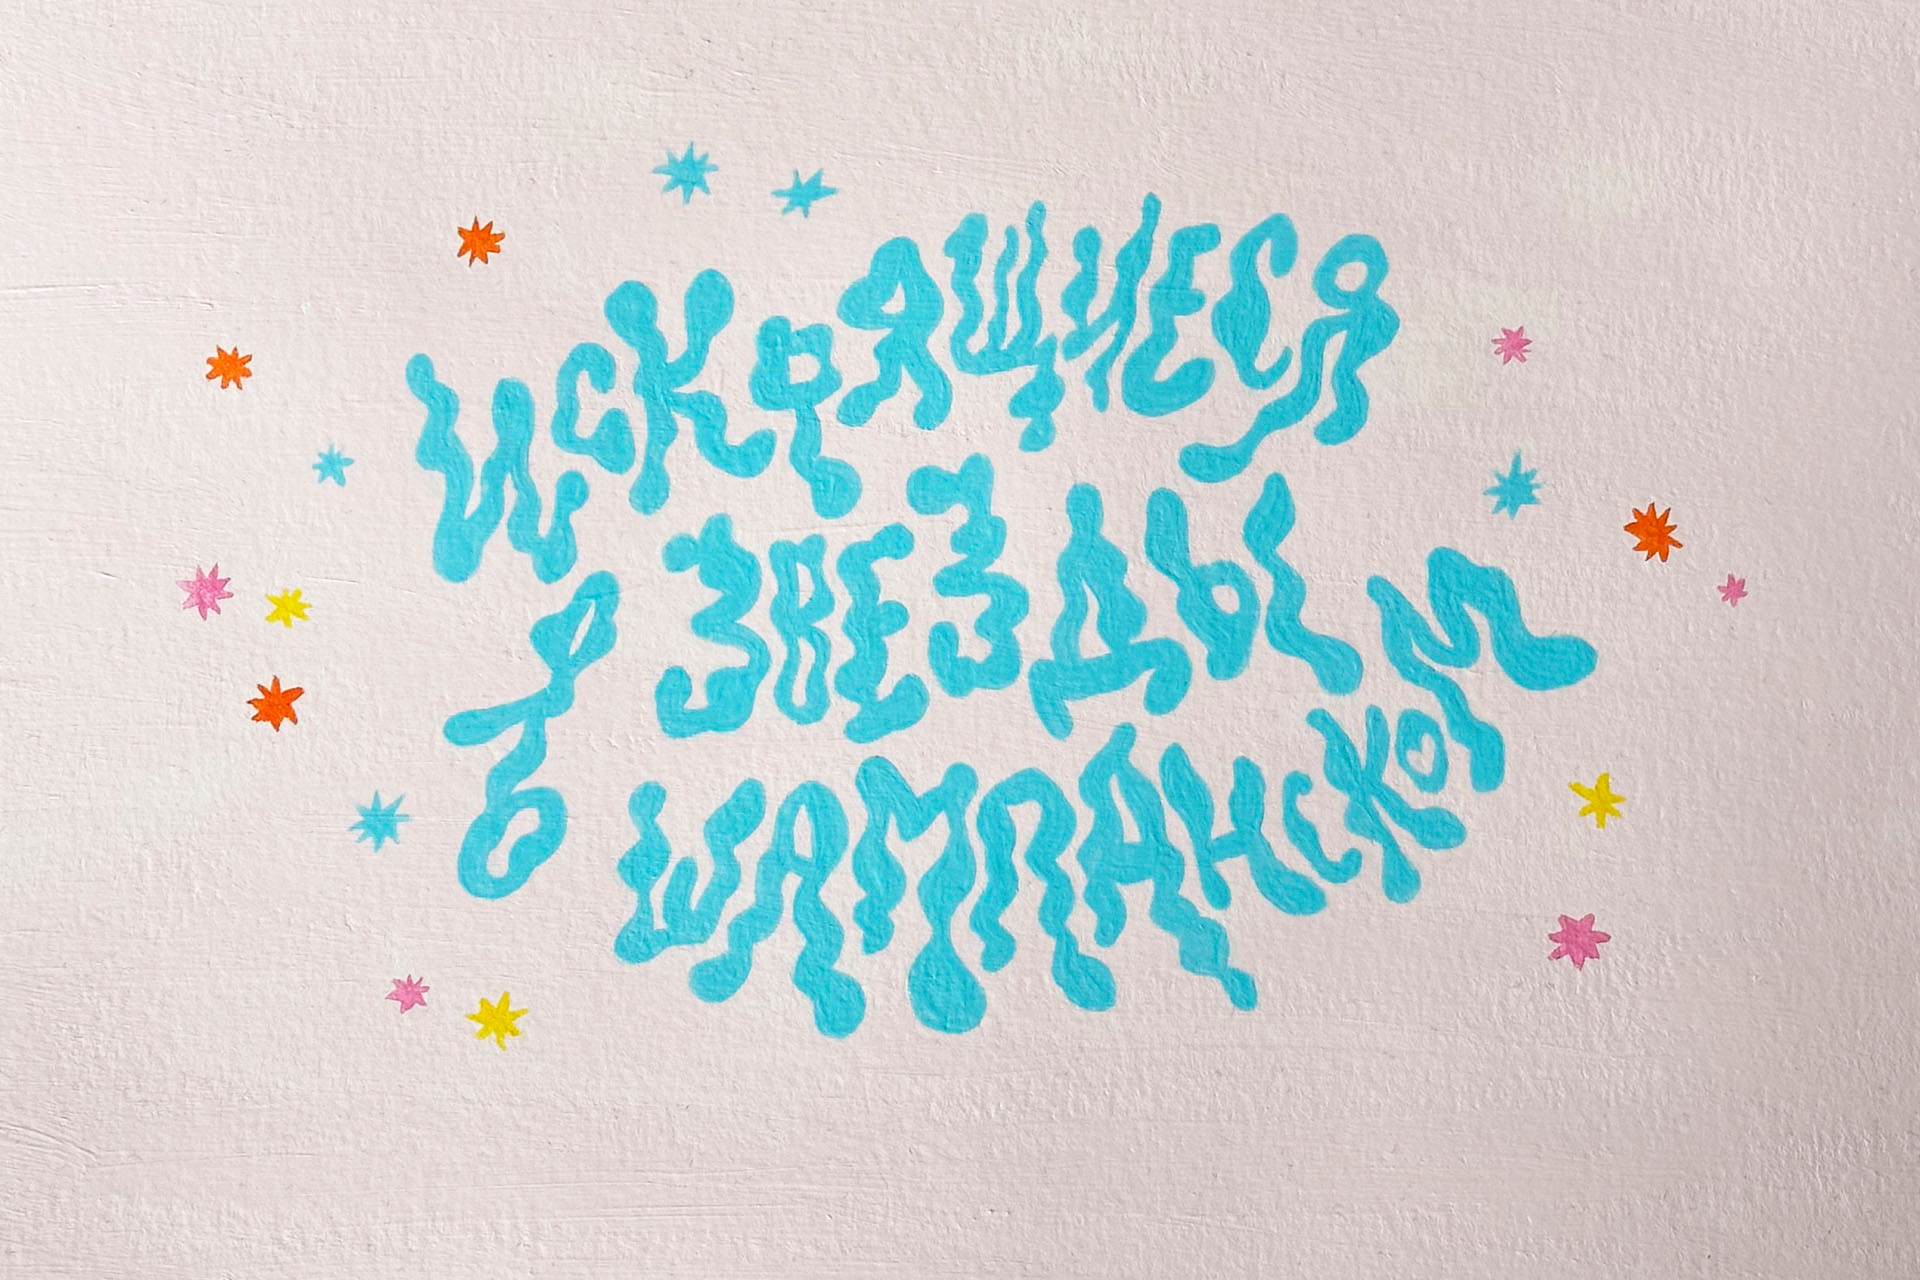 ИСКРЯЩИЕСЯ
ЗВЕЗДЫ
В ШАМПАНСКОМ